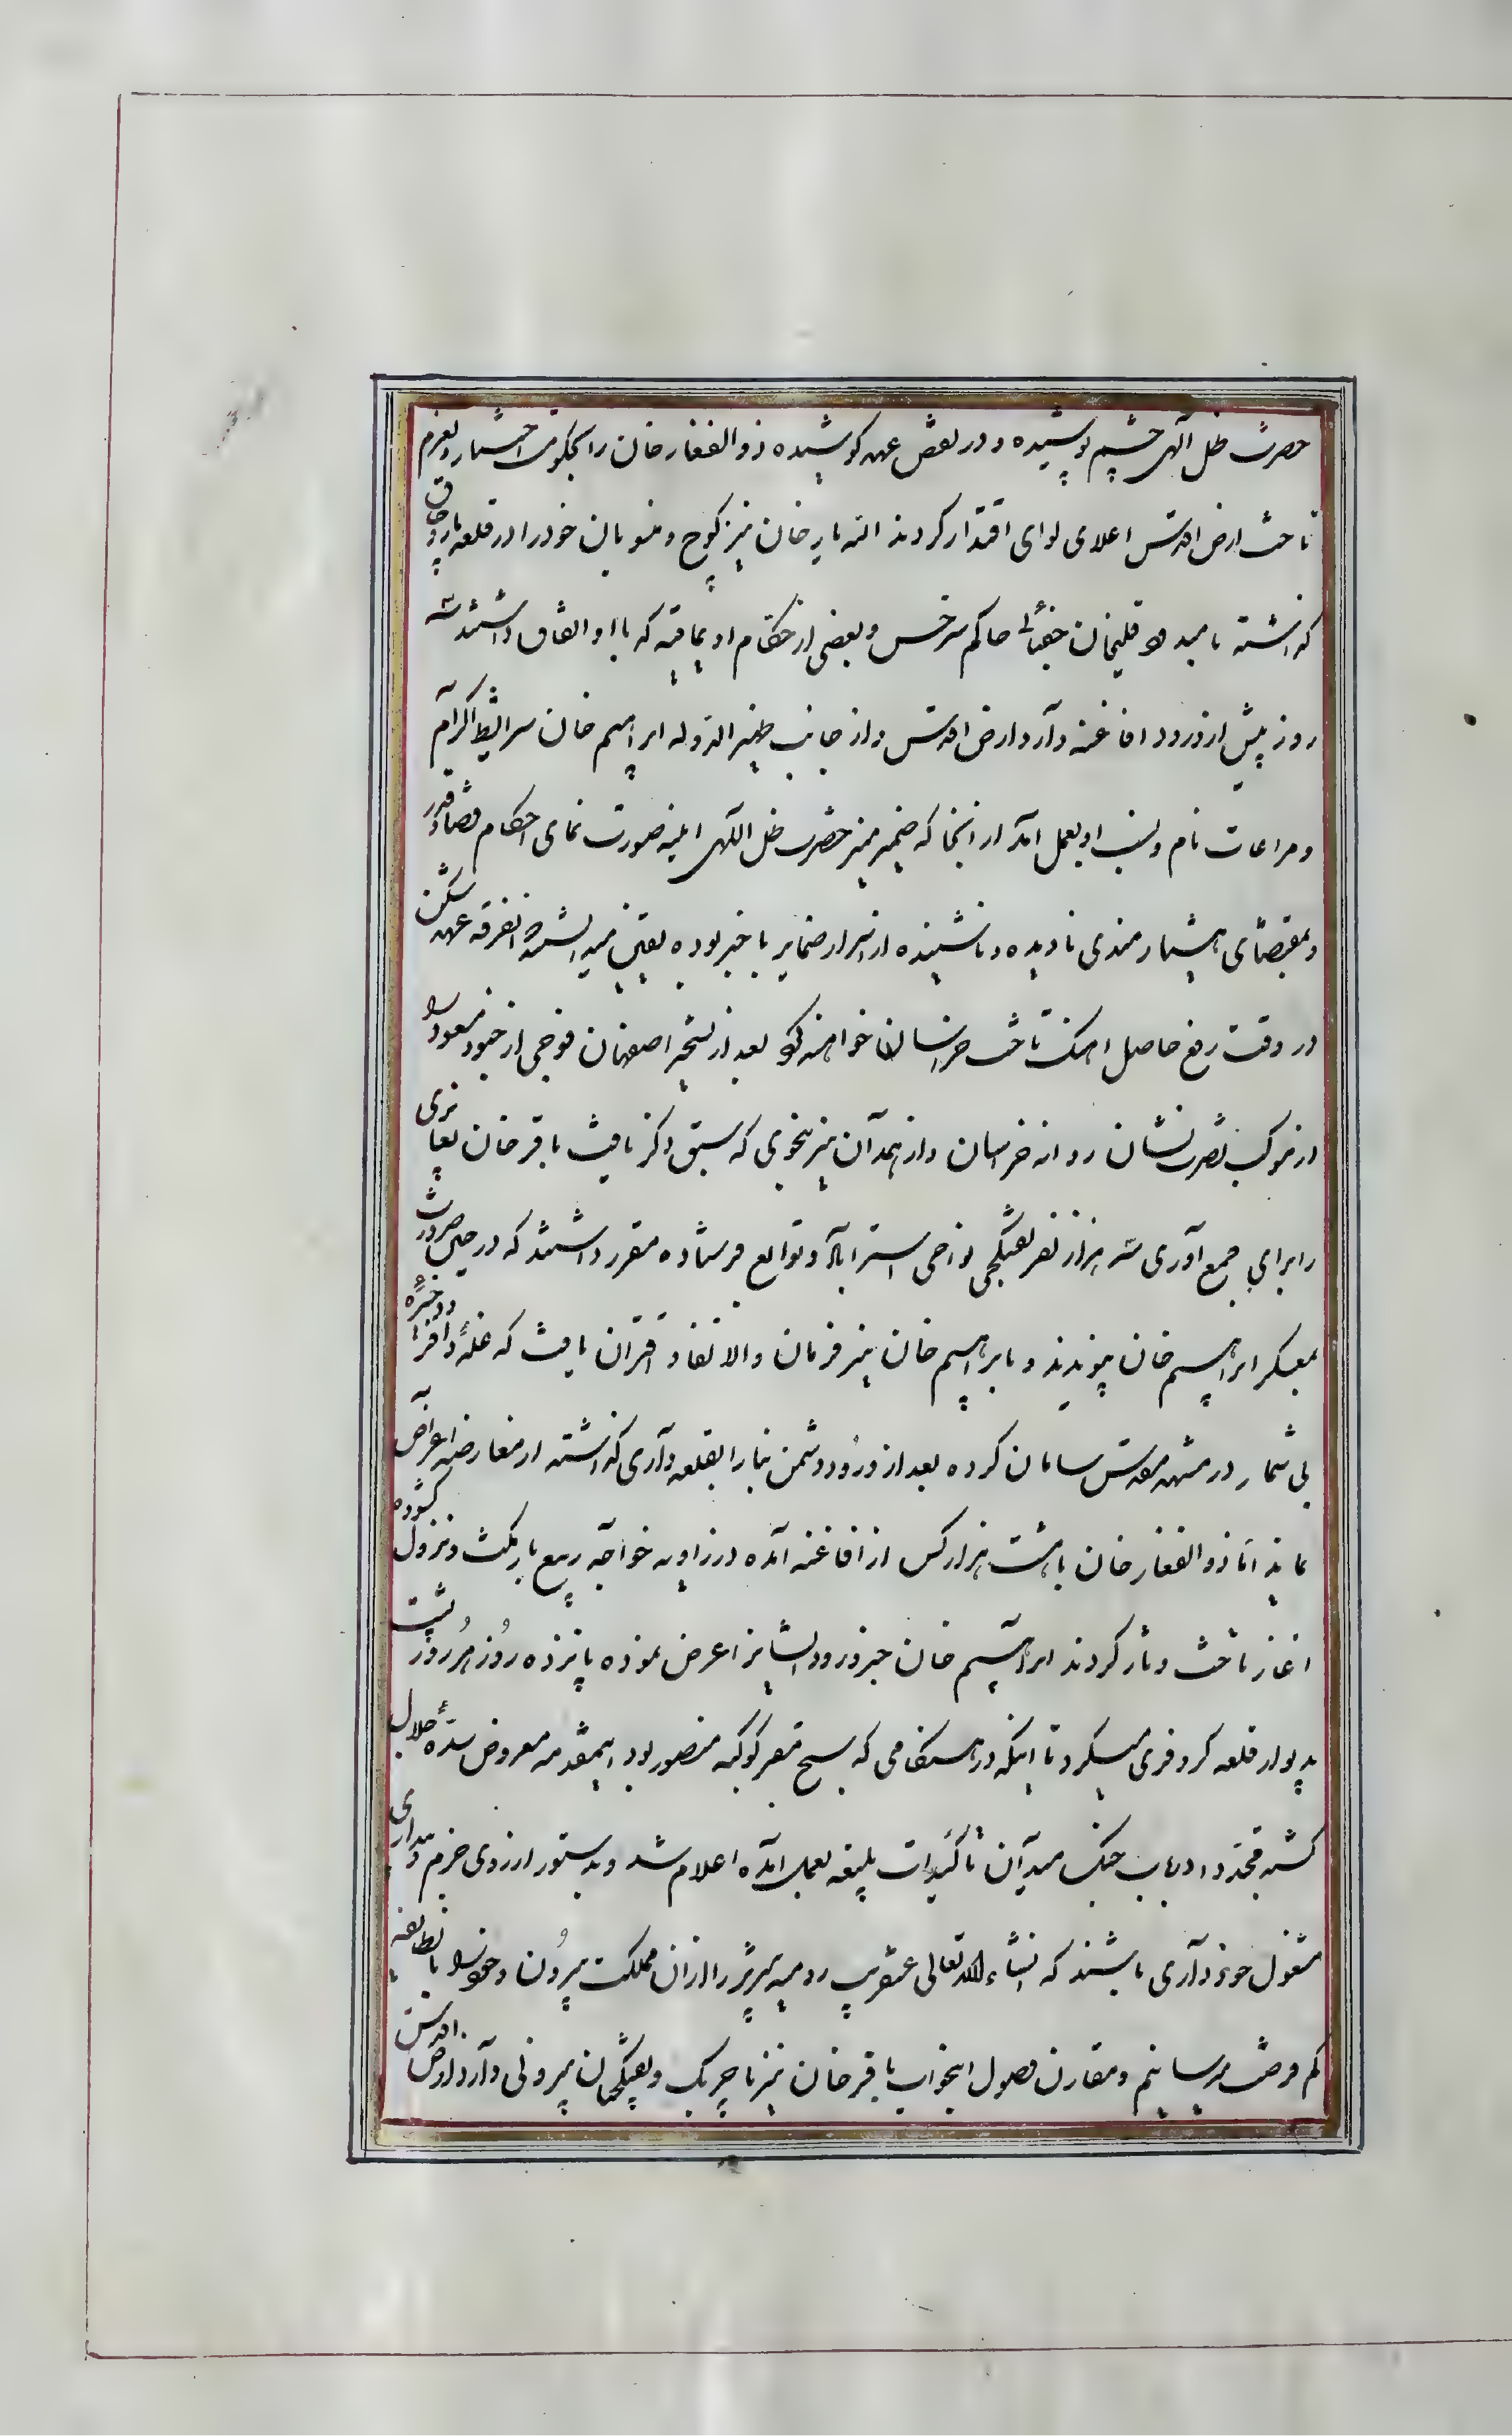 حضرت ظل الهی چشم پوشیده و در نقض عهد کوشیده ذوالفقار خان را بحکومت اختیار و بعزم
تاخت ارض اقدس اعلای لوای اقتدار کردند الله یار خان نیز کوچ و منسوبان خود را در قلعه
گذاشته با قلیخان حاکم سرخس و بعضی از حکام اویماقیه که با او اتفاق داشتند سه
روز پیش از ورود افاغنه وارد ارض اقدس و از جانب ظهیر الدوله ابراهیم خان شرایط اکرام
و مراعات نام و نسب او بعمل آمد از آنجا که ضمیر منیر حضرت ظل اللهی آینه صورت نمای احکام قضا و قدر
و بمقتضای هشیارمندی نادیده و ناشنیده از اسرار ضمایر با خبر بوده بیقین میدانستند که آنفرقه عهد شکن
در وقت رفع حاصل آهنگ تاخت خراسان خواهند کرد بعد از تسخیر اصفهان فوجی از جنود مسعود را
از موکب نصرت نشان روانه خراسان و از همدان نیز بنحوی که سبق ذکر یافت باقر خان
را برای جمع آوری سه هزار نفر تفنگچی نواحی استراباد و توابع فرستاده مقرر داشتند که در حین ضرورت
بمعسکر ابراهیم خان پیوندند و بابراهیم خان نیز فرمان والا نفاذ اقتران یافت که غله وافر و ذخیره
بی شمار در مشهد مقدس سامان کرده بعد از ورود دشمن بنا را بقلعه داری گذاشته از معارضه اعراض
نماید اما ذوالفقار خان با هشت هزار کس از افاغنه آمده در زاویه خواجه ربیع بار مکث و نزول گشوده
آغاز تاخت و تاز کردند ابراهیم خان خبر ورود ایشانرا عرض نموده پانزده روز هر روز پشت
بدیوار قلعه کر و فری میکرد تا اینکه در هنگامی که مقر کوکبه منصور بود اینمقدمه معروض سده جلال
گشته مجددا در باب جنگ میدان تأکیدات بلیغه بعمل آمده اعلام شد و بدستور از روی حزم
مشغول خودداری باشند که انشاء الله تعالی عنقریب رومیه تبریز را از آن مملکت بیرون و خود را بآنطایفه
کم فرصت میرسانیم و مقارن وصول اینجواب باقر خان نیز با چریک و تفنگچیان بیرونی وارد ارض اقدس